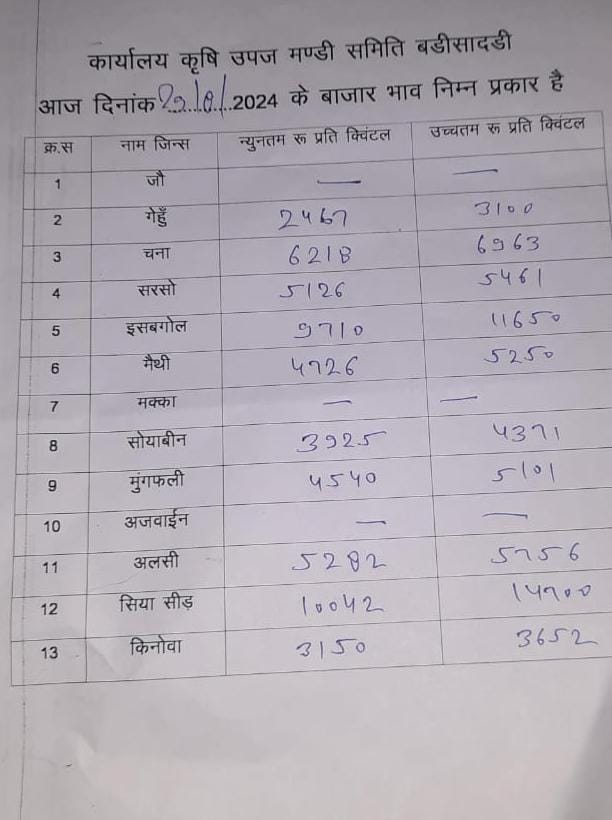 कार्यालय कृषि उपज मण्डी समिति बडीसादडी
आज दिनांक 29/8/2024 के बाजार भाव निम्न प्रकार है
क्र.स नाम जिन्स न्युनतम रू प्रति क्विंटल उच्चतम रू प्रति क्विंटल
1 जौ — —
2 गेहुँ 2467 3100
3 चना 6218 6963
4 सरसो 5126 5461
5 इसबगोल 9710 11650
6 मैथी 4726 5250
7 मक्का — —
8 सोयाबीन 3925 4371
9 मुंगफली 4540 5101
10 अजवाईन — —
11 अलसी 5282 5756
12 सिया सीड़ 10042 14700
13 किनोवा 3150 3652